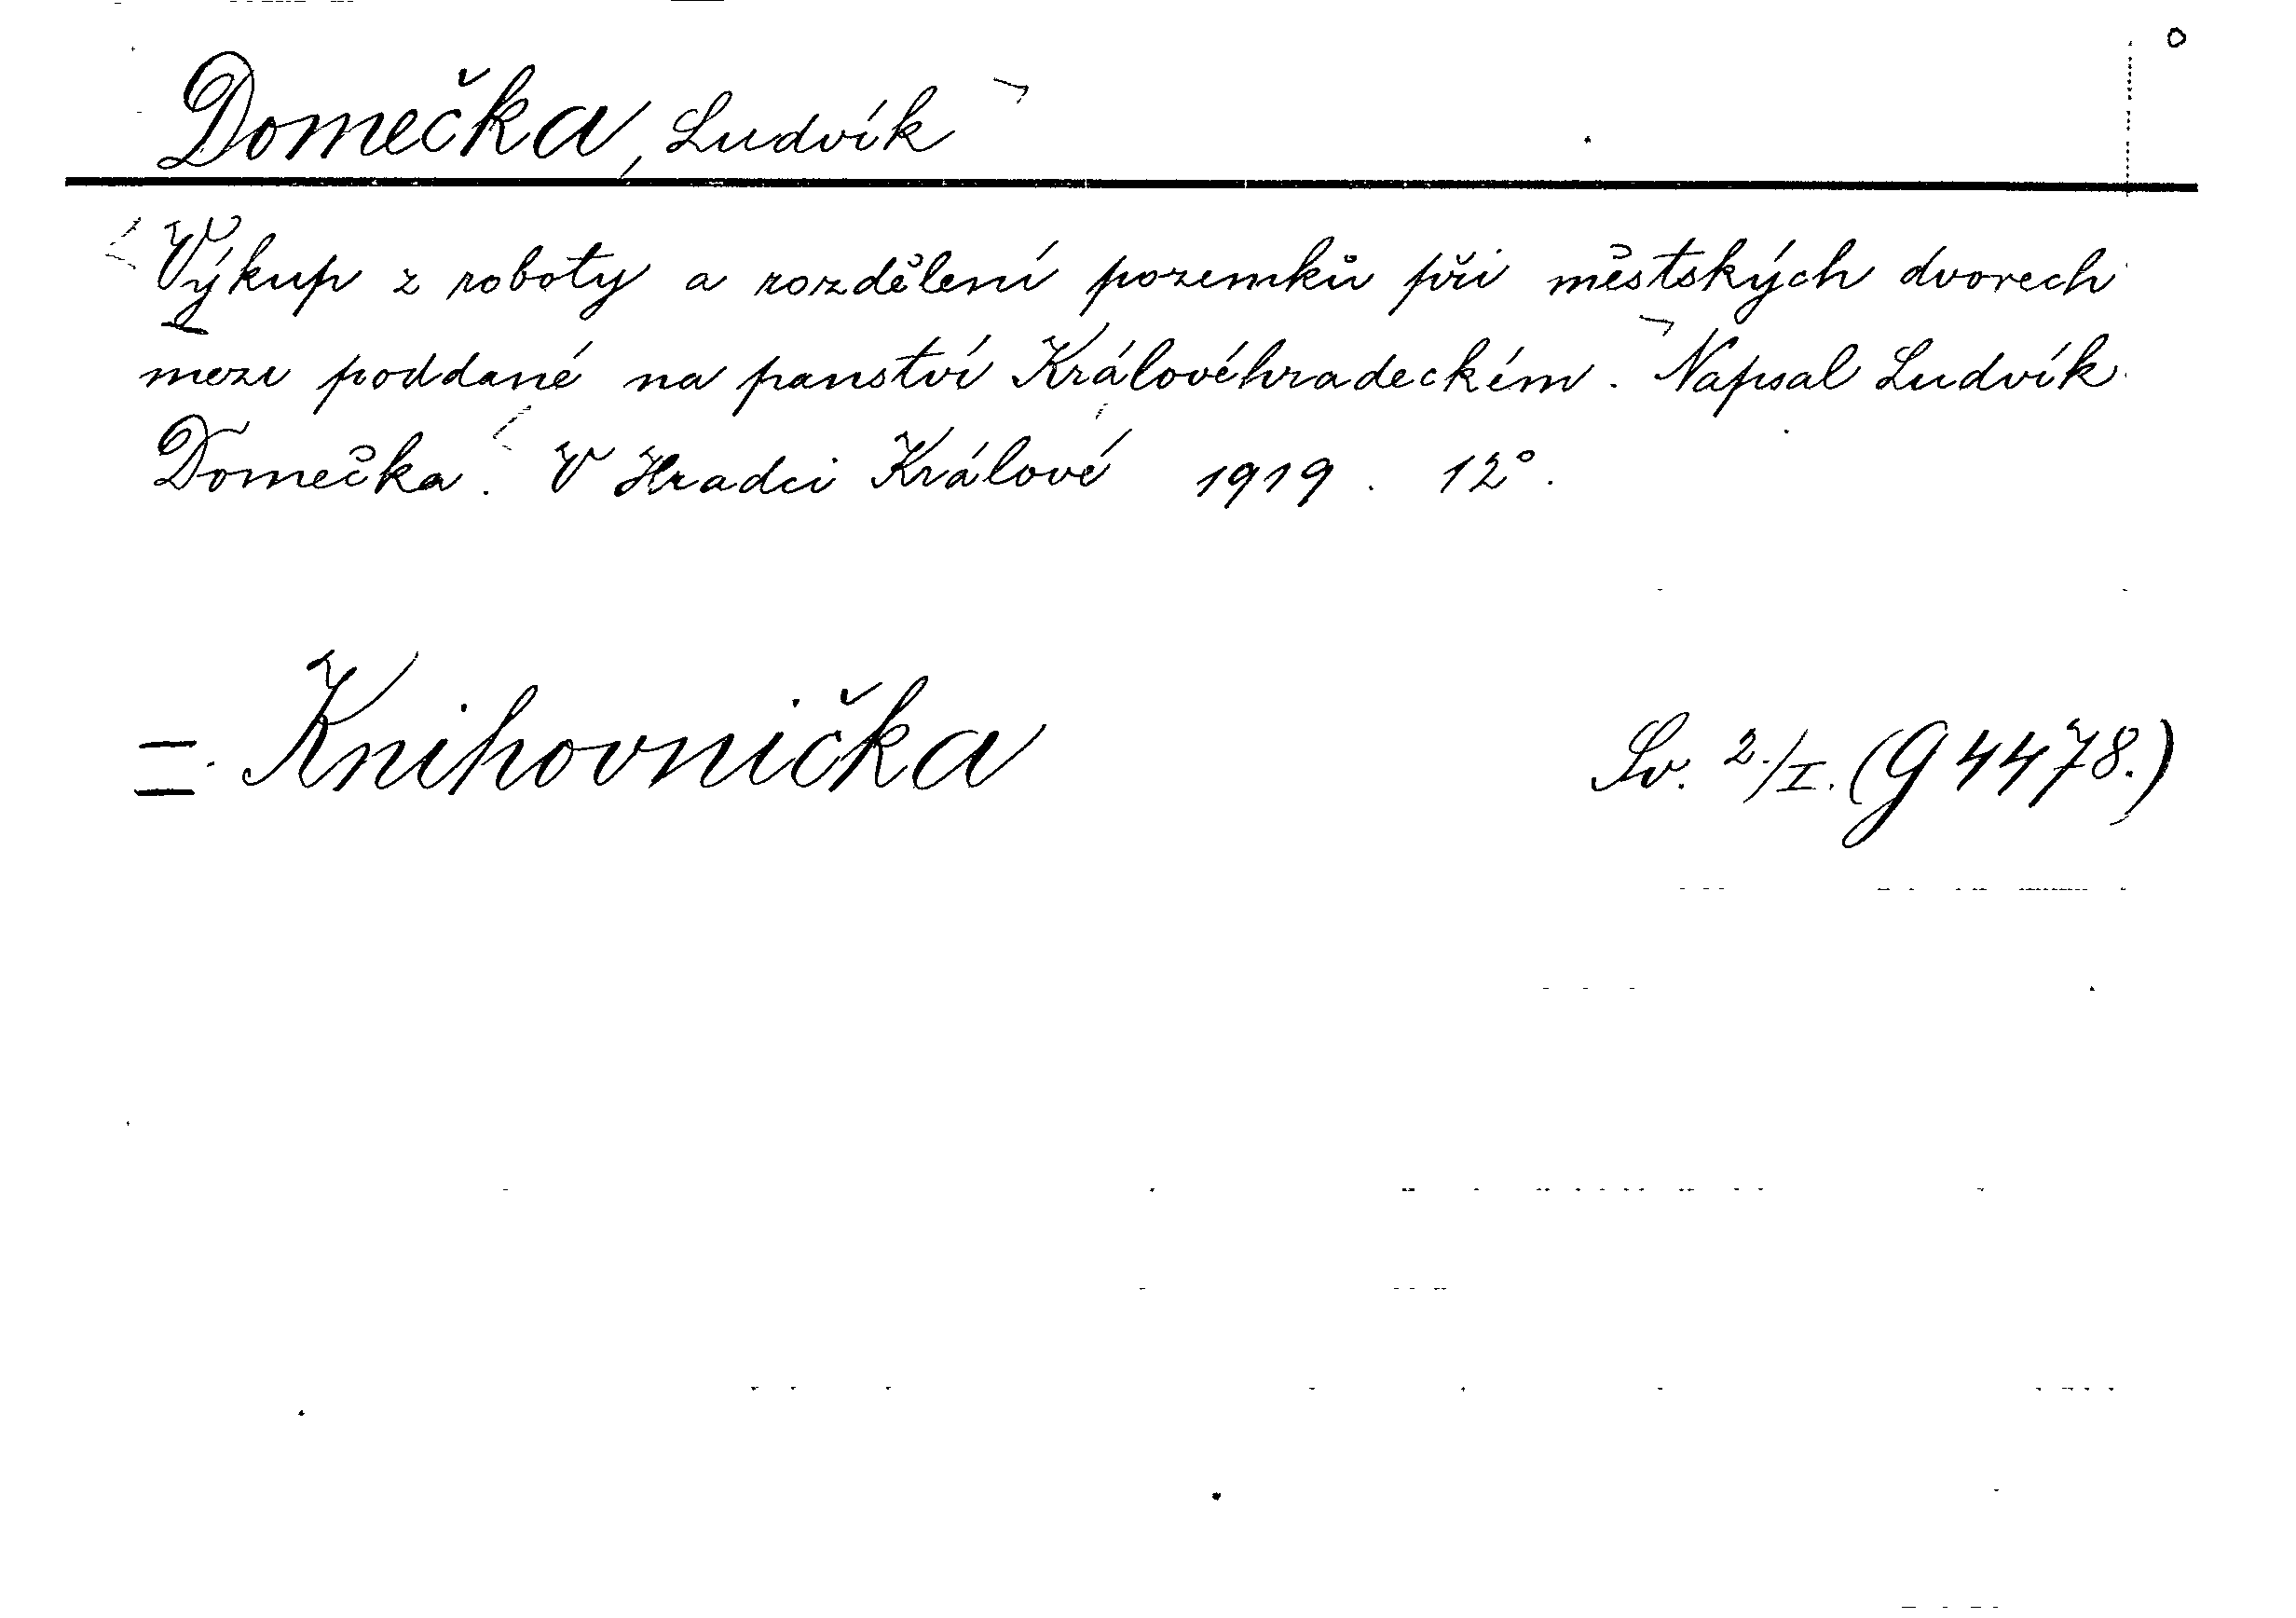 Domečka, Ludvík
Výkup z roboty a rozdělení pozemků při městských dvorech
mezi poddané na panství Královéhradeckém. Napsal Ludvík
Domečka. V Hradci Králové 1919. 12°.
=. Knihovnička Sv. 2./I. (G 4478.)